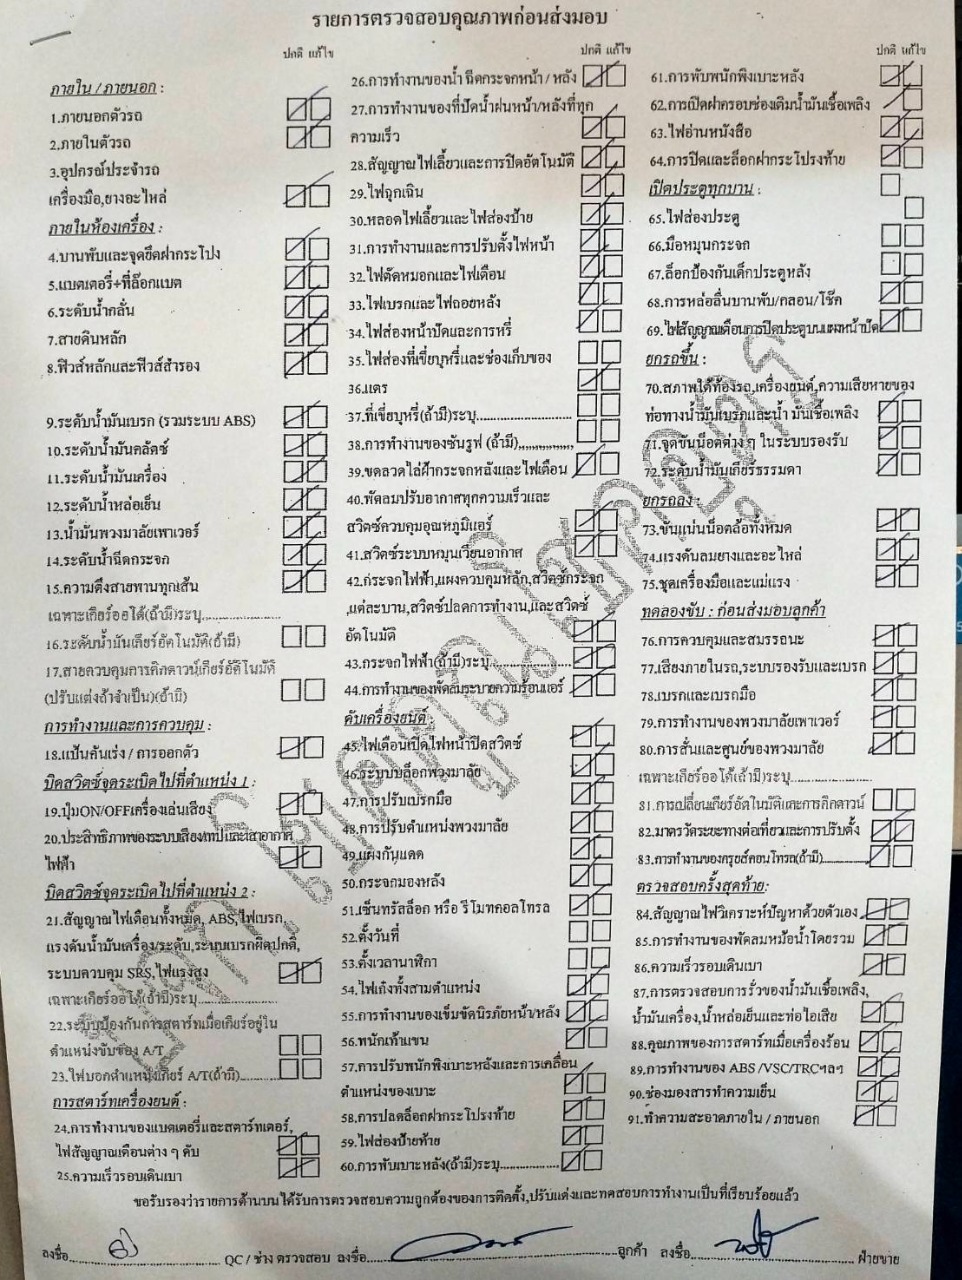 รายการตรวจสอบคุณภาพก่อนส่งมอบ
ปกติ แก้ไข
ภายใน / ภายนอก :
1.ภายนอกตัวรถ
2.ภายในตัวรถ
3.อุปกรณ์ประจำรถ
เครื่องมือ,ยางอะไหล่
ภายในห้องเครื่อง :
4.บานพับและจุดยึดฝากระโปง
5.แบตเตอรี่+ที่ล๊อกแบต
6.ระดับน้ำกลั่น
7.สายดินหลัก
8.ฟิวส์หลักและฟิวส์สำรอง
9.ระดับน้ำมันเบรก (รวมระบบ ABS)
10.ระดับน้ำมันคลัตช์
11.ระดับน้ำมันเครื่อง
12.ระดับน้ำหล่อเย็น
13.น้ำมันพวงมาลัยเพาเวอร์
14.ระดับน้ำฉีดกระจก
15.ความตึงสายพานทุกเส้น
เฉพาะเกียร์ออโต้(ถ้ามี)ระบุ..............
16.ระดับน้ำมันเกียร์อัตโนมัติ(ถ้ามี)
17.สายควบคุมการคิกดาวน์เกียร์อัตโนมัติ
(ปรับแต่งถ้าจำเป็น)(ถ้ามี)
การทำงานและการควบคุม :
18.แป้นคันเร่ง / การออกตัว
บิดสวิตซ์จุดระเบิดไปที่ตำแหน่ง 1 :
19.ปุ่มON/OFFเครื่องเล่นเสียง
20.ประสิทธิภาพของระบบเสียง/เทปและเสาอากาศ
ไฟฟ้า
บิดสวิตซ์จุดระเบิดไปที่ตำแหน่ง 2 :
21.สัญญาณไฟเตือนทั้งหมด, ABS,ไฟเบรก,
แรงดันน้ำมันเครื่อง/ระดับ,ระบบเบรกผิดปกติ,
ระบบควบคุม SRS,ไฟแรงสูง
เฉพาะเกียร์ออโต้(ถ้ามี)ระบุ..............
22.ระบบป้องกันการสตาร์ทเมื่อเกียร์อยู่ใน
ตำแหน่งขับของ A/T
23.ไฟบอกตำแหน่งเกียร์ A/T(ถ้ามี)..............
การสตาร์ทเครื่องยนต์ :
24.การทำงานของแบตเตอรี่และสตาร์ทเตอร์,
ไฟสัญญาณเตือนต่าง ๆ ดับ
25.ความเร็วรอบเดินเบา
ปกติ แก้ไข
26.การทำงานของน้ำ ฉีดกระจกหน้า / หลัง
27.การทำงานของที่ปัดน้ำฝนหน้า/หลังที่ทุก
ความเร็ว
28.สัญญาณไฟเลี้ยวและการปิดอัตโนมัติ
29.ไฟฉุกเฉิน
30.หลอดไฟเลี้ยวและไฟส่องป้าย
31.การทำงานและการปรับตั้งไฟหน้า
32.ไฟตัดหมอกและไฟเตือน
33.ไฟเบรกและไฟถอยหลัง
34.ไฟส่องหน้าปัดและการหรี่
35.ไฟส่องที่เขี่ยบุหรี่และช่องเก็บของ
36.แตร
37.ที่เขี่ยบุหรี่(ถ้ามี)ระบุ..............
38.การทำงานของซันรูฟ (ถ้ามี)..............
39.ขดลวดไล่ฝ้ากระจกหลังและไฟเตือน
40.พัดลมปรับอากาศทุกความเร็วและ
สวิตซ์ควบคุมอุณหภูมิแอร์
41.สวิตซ์ระบบหมุนเวียนอากาศ
42.กระจกไฟฟ้า,แผงควบคุมหลัก,สวิตซ์กระจก
,แต่ละบาน,สวิตซ์ปลดการทำงาน,และสวิตซ์
อัตโนมัติ
43.กระจกไฟฟ้า(ถ้ามี)ระบุ..............
44.การทำงานของพัดลมระบายความร้อนแอร์
ดับเครื่องยนต์ :
45.ไฟเตือนเปิดไฟหน้าปิดสวิตซ์
46.ระบบบล็อกพวงมาลัย
47.การปรับเบรกมือ
48.การปรับตำแหน่งพวงมาลัย
49.แผงกันแดด
50.กระจกมองหลัง
51.เซ็นทรัลล็อก หรือ รีโมทคอลโทรล
52.ตั้งวันที่
53.ตั้งเวลานาฬิกา
54.ไฟเก๋งทั้งสามตำแหน่ง
55.การทำงานของเข็มขัดนิรภัยหน้า/หลัง
56.พนักเท้าแขน
57.การปรับพนักพิงเบาะหลังและการเคลื่อน
ตำแหน่งของเบาะ
58.การปลดล็อกฝากระโปรงท้าย
59.ไฟส่องป้ายท้าย
60.การพับเบาะหลัง(ถ้ามี)ระบุ..............
ปกติ แก้ไข
61.การพับพนักพิงเบาะหลัง
62.การเปิดฝาครอบช่องเติมน้ำมันเชื้อเพลิง
63.ไฟอ่านหนังสือ
64.การปิดและล็อกฝากระโปรงท้าย
เปิดประตูทุกบาน :
65.ไฟส่องประตู
66.มือหมุนกระจก
67.ล็อกป้องกันเด็กประตูหลัง
68.การหล่อลื่นบานพับ/กลอน/โช๊ค
69.ไฟสัญญาณเตือนการปิดประตูบนแผงหน้าปัด
ยกรถขึ้น :
70.สภาพใต้ท้องรถ,เครื่องยนต์,ความเสียหายของ
ท่อทางน้ำมันเบรกและน้ำ มันเชื้อเพลิง
71.จุดขันน็อตต่าง ๆ ในระบบรองรับ
72.ระดับน้ำมันเกียร์ธรรมดา
ยกรถลง :
73.ขันแน่นน็อตล้อทั้งหมด
74.แรงดันลมยางและอะไหล่
75.ชุดเครื่องมือและแม่แรง
ทดลองขับ : ก่อนส่งมอบลูกค้า
76.การควบคุมและสมรรถนะ
77.เสียงภายในรถ,ระบบรองรับและเบรก
78.เบรกและเบรกมือ
79.การทำงานของพวงมาลัยเพาเวอร์
80.การสั่นและศูนย์ของพวงมาลัย
เฉพาะเกียร์ออโต้(ถ้ามี)ระบุ..............
81.การเปลี่ยนเกียร์อัตโนมัติและการคิกดาวน์
82.มาตรวัดระยะทางต่อเที่ยวและการปรับตั้ง
83.การทำงานของครุยส์คอนโทรล(ถ้ามี)
ตรวจสอบครั้งสุดท้าย:
84.สัญญาณไฟวิเคราะห์ปัญหาด้วยตัวเอง
85.การทำงานของพัดลมหม้อน้ำโดยรวม
86.ความเร็วรอบเดินเบา
87.การตรวจสอบการรั่วของน้ำมันเชื้อเพลิง,
น้ำมันเครื่อง,น้ำหล่อเย็นและท่อไอเสีย
88.คุณภาพของการสตาร์ทเมื่อเครื่องร้อน
89.การทำงานของ ABS /VSC/TRCฯลฯ
90.ช่องมองสารทำความเย็น
91.ทำความสะอาดภายใน / ภายนอก
ขอรับรองว่ารายการด้านบนได้รับการตรวจสอบความถูกต้องของการติดตั้ง,ปรับแต่งและทดสอบการทำงานเป็นที่เรียบร้อยแล้ว
ลงชื่อ.............. QC / ช่าง ตรวจสอบ ลงชื่อ..............ลูกค้า ลงชื่อ..............ฝ่ายขาย